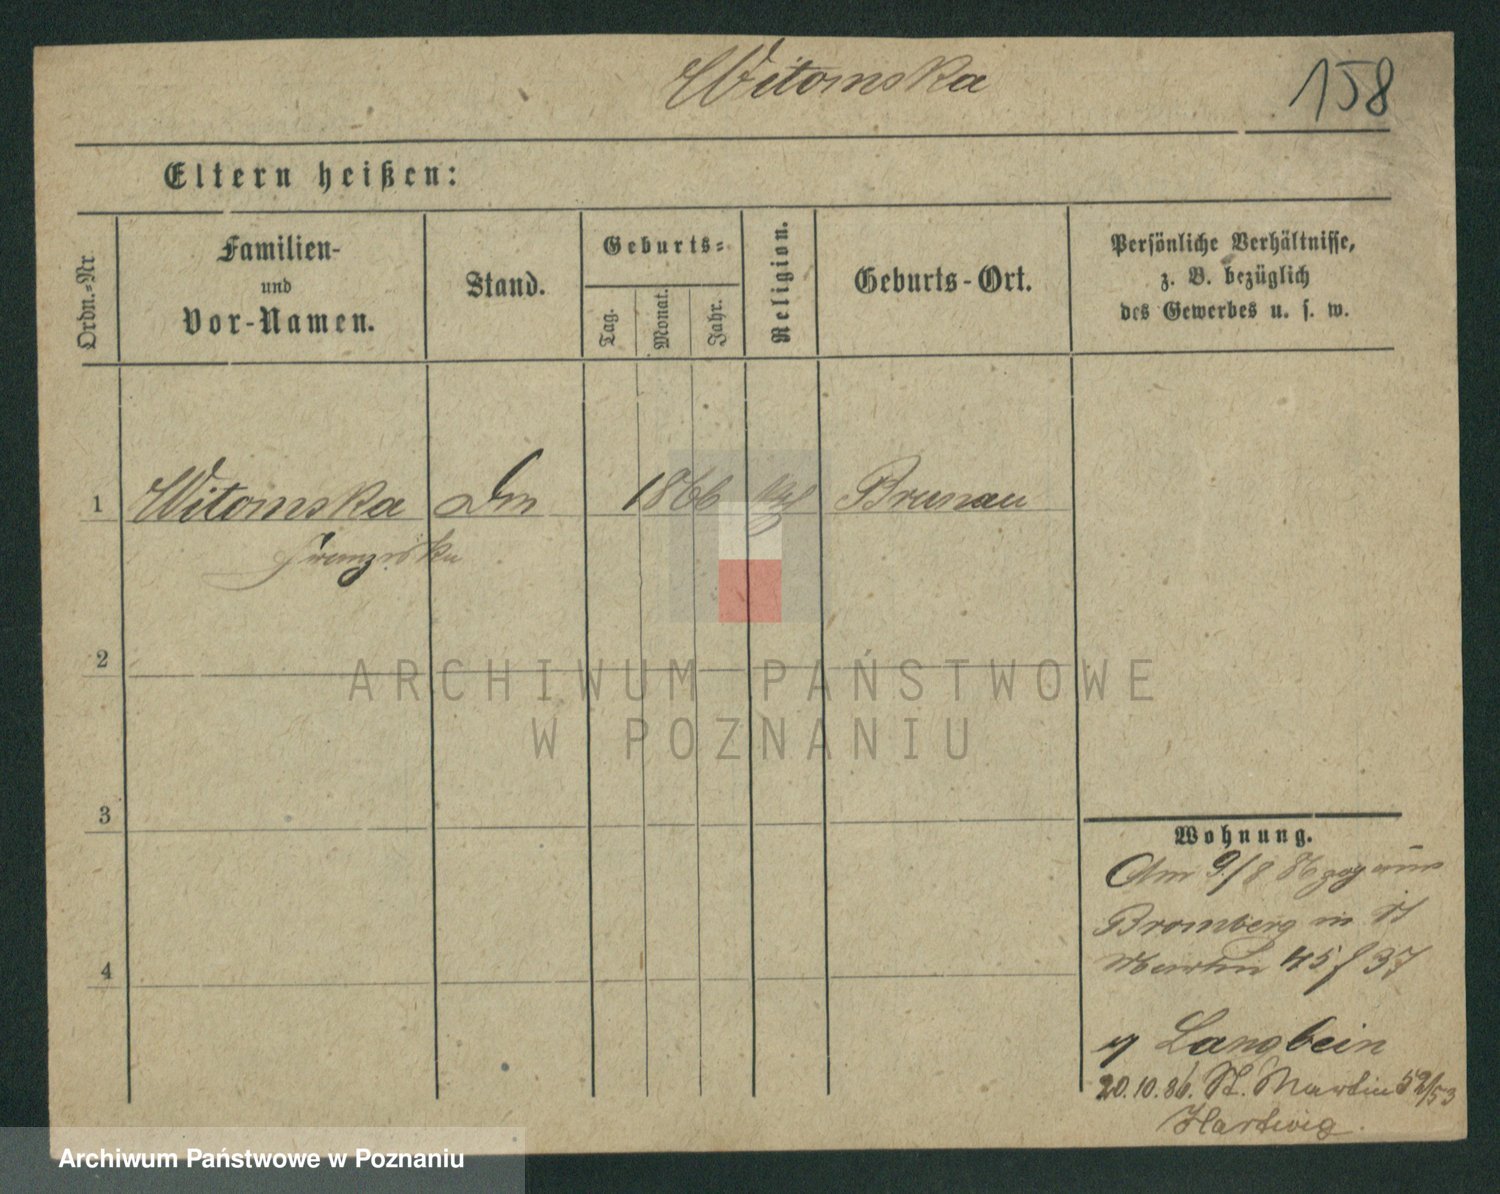 Witomska
158
Eltern heißen:
Ordn.-Nr
Familien-
und
Vor-Namen.
Stand.
Geburts-
Tag.
Monat.
Jahr.
Religion.
Geburts-Ort.
Persönliche Verhältnisse,
z. B. bezüglich
des Gewerbes u. s. w.
1 Witomska 1866 Brunau
Franziska
2
3
4
Wohnung.
Am 9/8 86 zog aus
Bromberg in St
Martin 45 f 37
Langbein
20.10.86. St. Martin 52/53
Hartwig.
ARCHIWUM PAŃSTWOWE
W POZNANIU
Archiwum Państwowe w Poznaniu